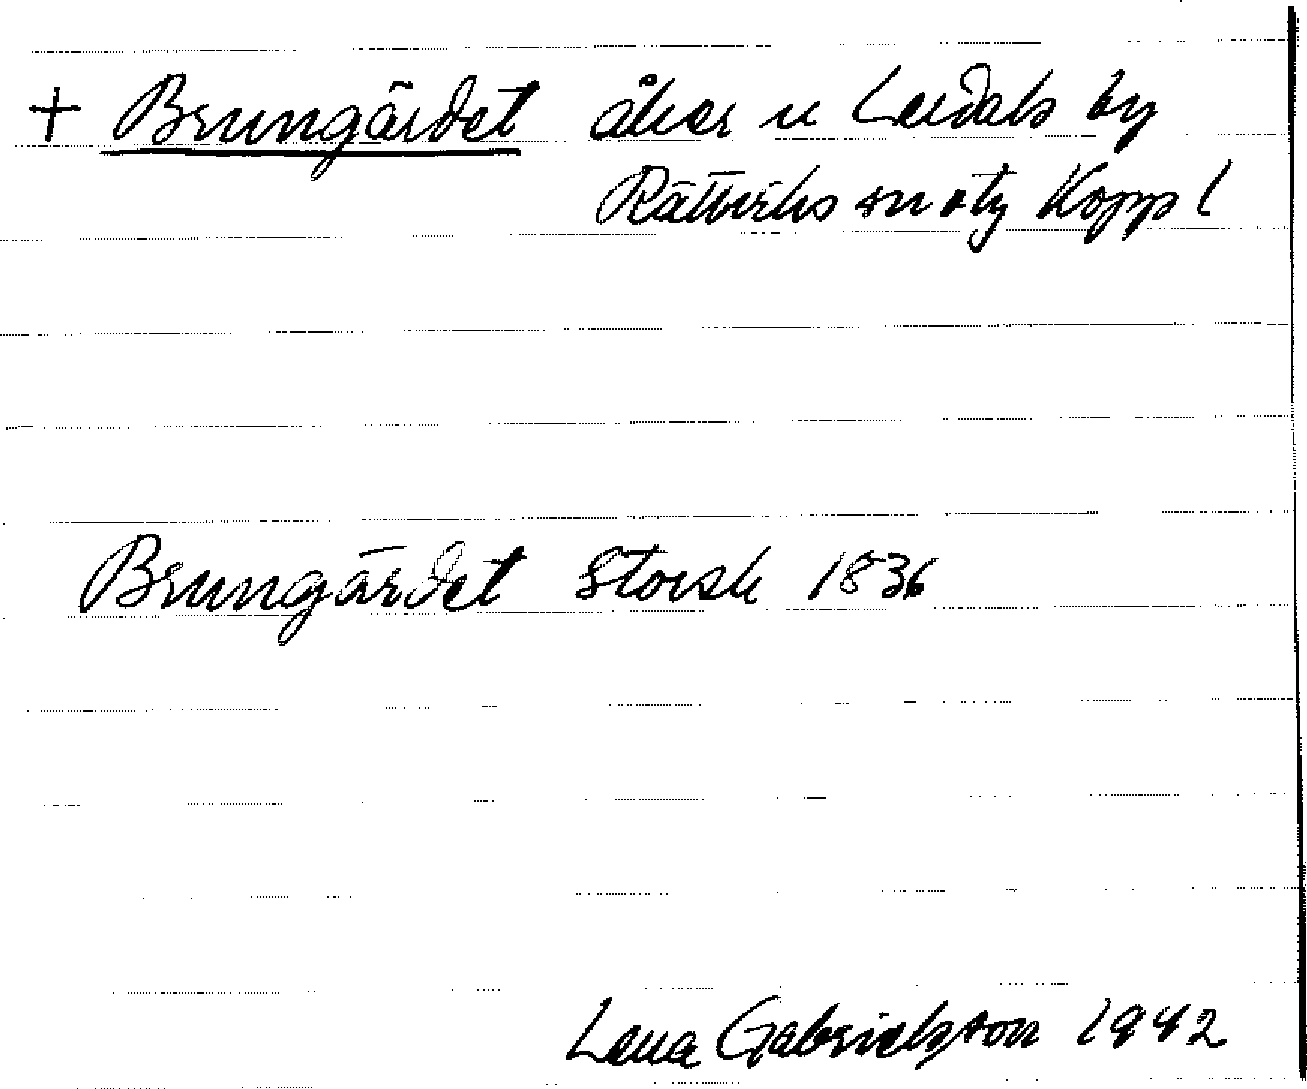 + Brungärdet åker u Lerdals by
Rättviks sn o tg Kopp l
Brungärdet Storsk 1836
Lena Gabrielsson 1942